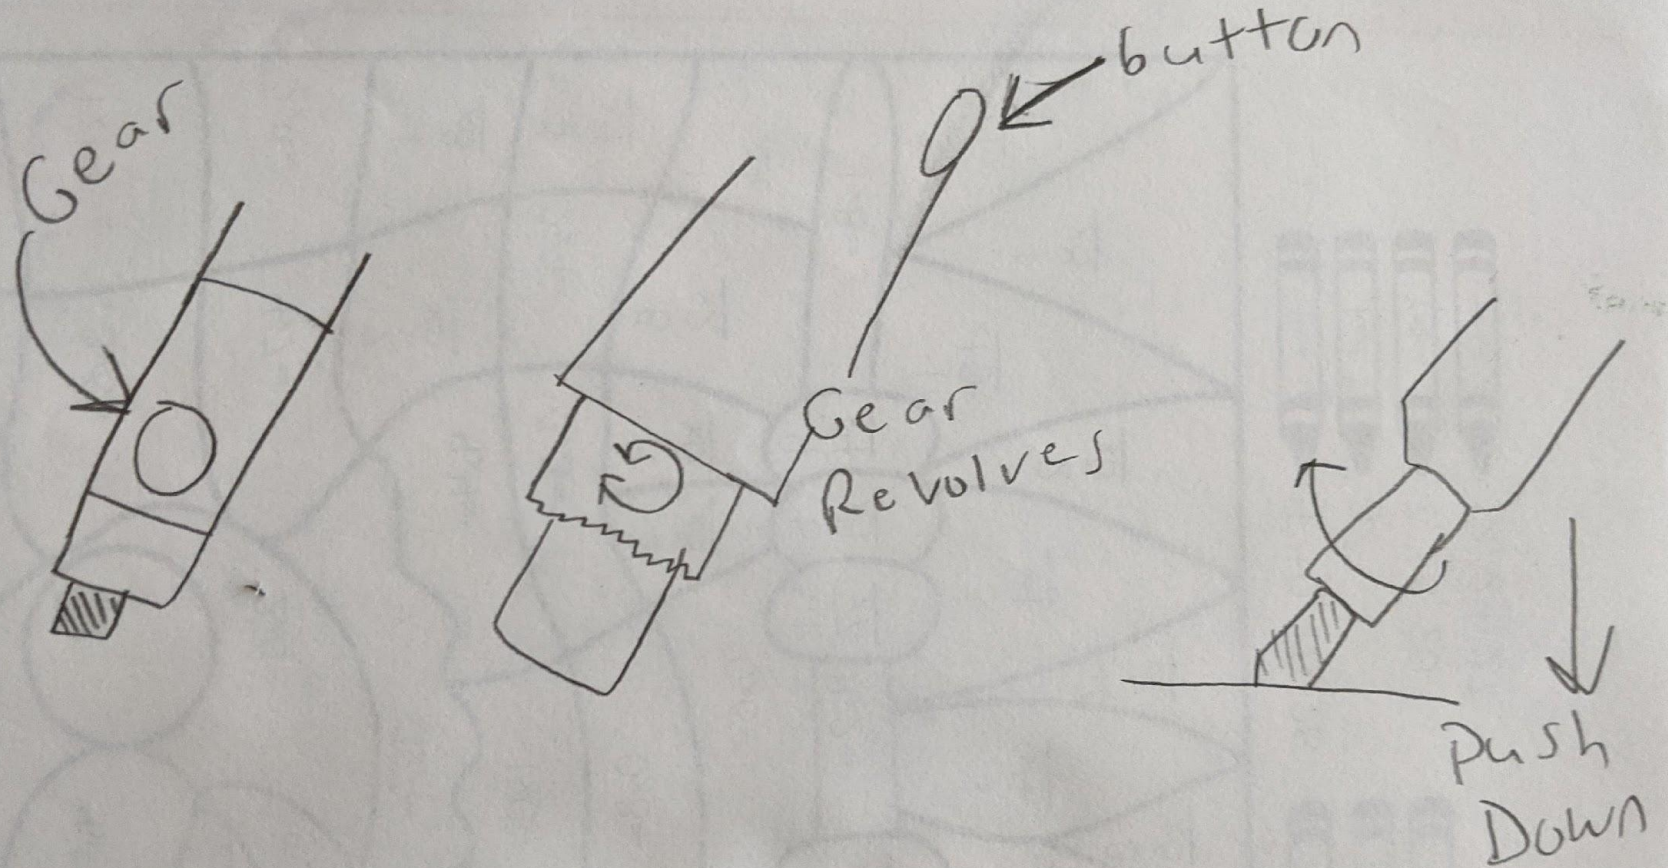 Gear
button
Gear
Revolves
Push
Down